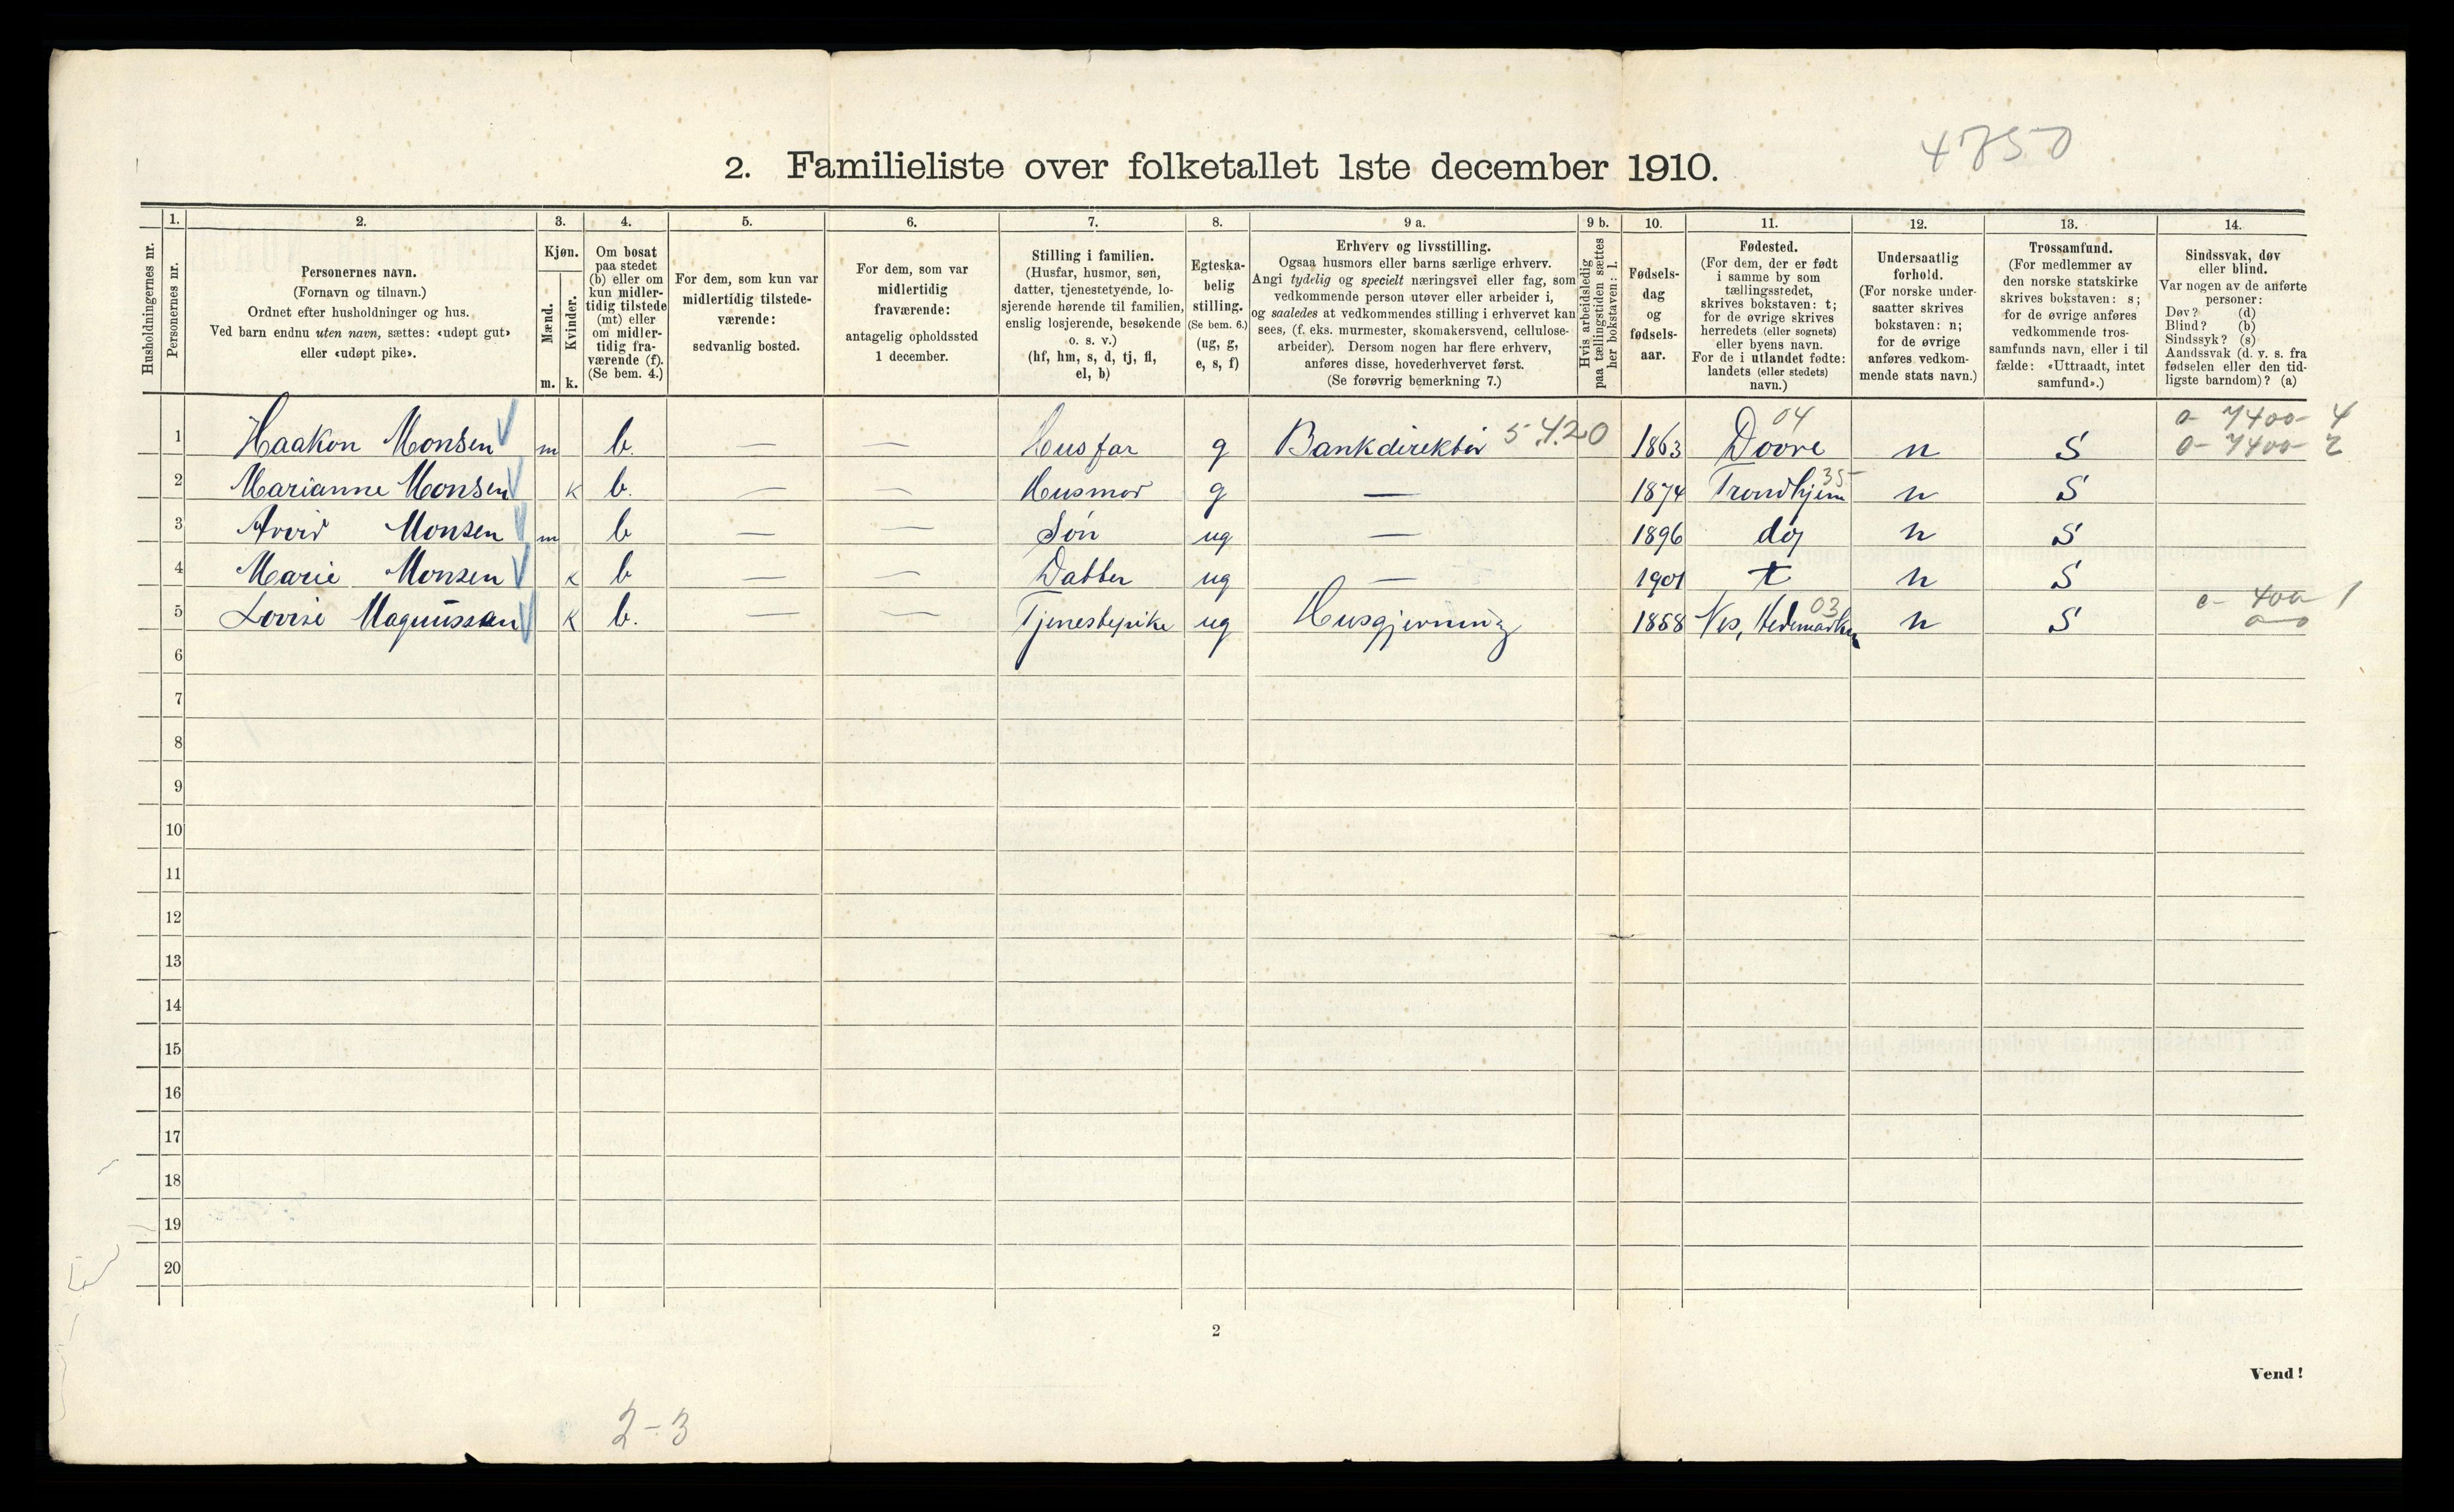 4750
2. Familieliste over folketallet 1ste december 1910.
Husholdningernes nr.
1.
Personernes nr.
2.
Personernes navn.
(Fornavn og tilnavn.)
Ordnet efter husholdninger og hus.
Ved barn endnu uten navn, sættes: «udøpt gut»
eller «udøpt pike».
3.
Kjøn.
Mænd.
Kvinder.
m. k.
4.
Om bosat
paa stedet
(b) eller om
kun midler-
tidig tilstede
(mt) eller
om midler-
tidig fra-
værende (f).
(Se bem. 4.)
5.
For dem, som kun var
midlertidig tilstede-
værende:
sedvanlig bosted.
6.
For dem, som var
midlertidig
fraværende:
antagelig opholdssted
1 december.
7.
Stilling i familien.
(Husfar, husmor, søn,
datter, tjenestetyende, lo-
sjerende hørende til familien,
enslig losjerende, besøkende
o. s. v.)
(hf, hm, s, d, tj, fl,
el, b)
8.
Egteska-
belig
stilling.
(Se bem. 6.)
(ug, g,
e, s, f)
9 a.
Erhverv og livsstilling.
Ogsaa husmors eller barns særlige erhverv.
Angi tydelig og specielt næringsvei eller fag, som
vedkommende person utøver eller arbeider i,
og saaledes at vedkommendes stilling i erhvervet kan
sees, (f. eks. murmester, skomakersvend, cellulose-
arbeider). Dersom nogen har flere erhverv,
anføres disse, hovederhvervet først.
(Se forøvrig bemerkning 7.)
9 b.
Hvis arbeidsledig
paa tællingstiden sættes
her bokstaven: l.
10.
Fødsels-
dag
og
fødsels-
aar.
11.
Fødested.
(For dem, der er født
i samme by som
tællingsstedet,
skrives bokstaven: t;
for de øvrige skrives
herredets (eller sognets)
eller byens navn.
For de i utlandet fødte:
landets (eller stedets)
navn.)
12.
Undersaatlig
forhold.
(For norske under-
saatter skrives
bokstaven: n;
for de øvrige
anføres vedkom-
mende stats navn.)
13.
Trossamfund.
(For medlemmer av
den norske statskirke
skrives bokstaven: s;
for de øvrige anføres
vedkommende tros-
samfunds navn, eller i til
fælde: «Uttraadt, intet
samfund».)
14.
Sindssvak, døv
eller blind.
Var nogen av de anførte
personer:
Døv? (d)
Blind? (b)
Sindssyk? (s)
Aandssvak (d. v. s. fra
fødselen eller den tid-
ligste barndom)? (a)
04 0- 7400- 4
1 Haakon Monsen m b. — — Husfar g Bankdirektør 5.420 1863 Dovre n S 0- 7400- 2
2 Marianne Monsen k b. — — Husmor g — 1874 Trondhjem 35 n S
3 Arvid Monsen m b — — Søn ug — 1896 do n S
4 Marie Monsen k b — — Datter ug — 1901 t n S
5 Lovise Magnussen k b. — — Tjenestepike ug Husgjerning 1858 Nes, Hedemarken 03 n S 400 1
6
7
8
9
10
11
12
13
14
15
16
17
18
19
20
2
Vend!
2-3